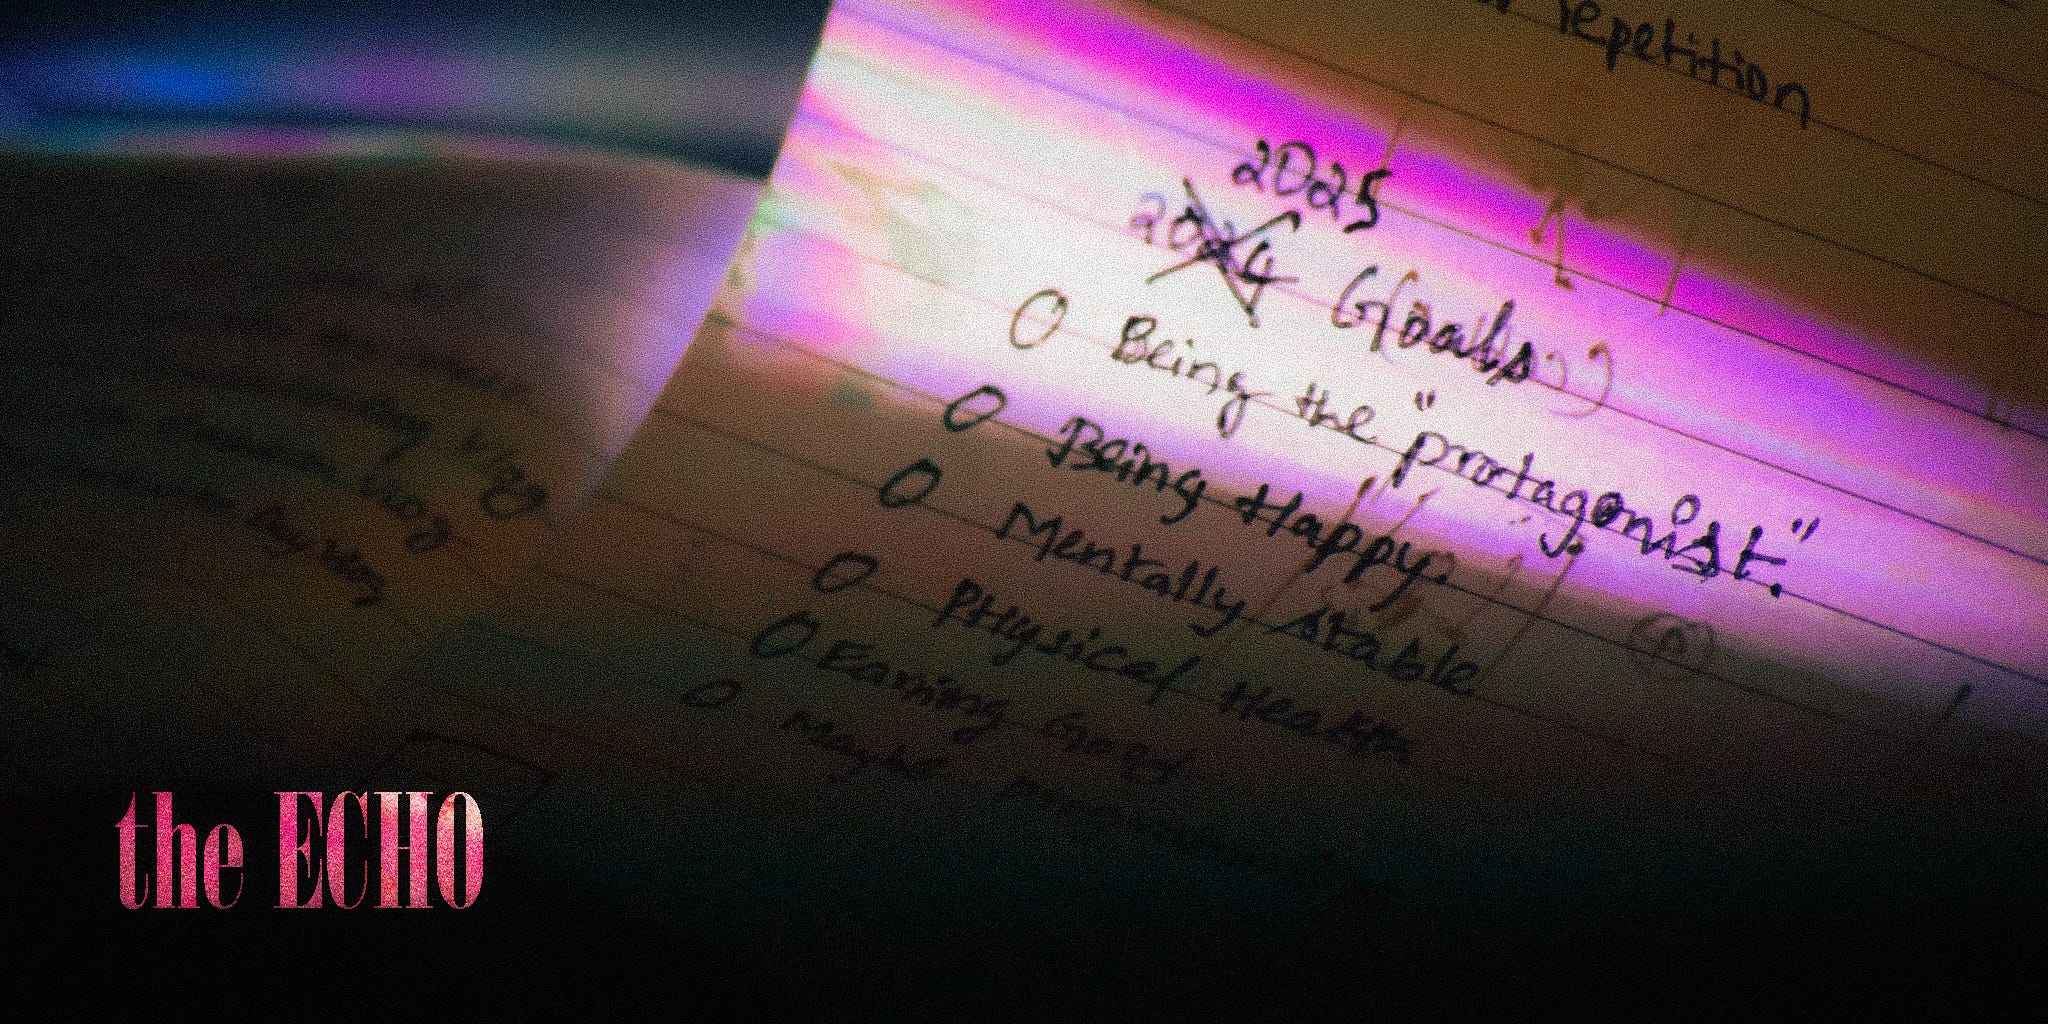 repetition
2025
2024 Goals :)
O Being the "protagonist."
O Being Happy.
O Mentally stable
O Physical Health
O Earning Good
O Maybe
the ECHO